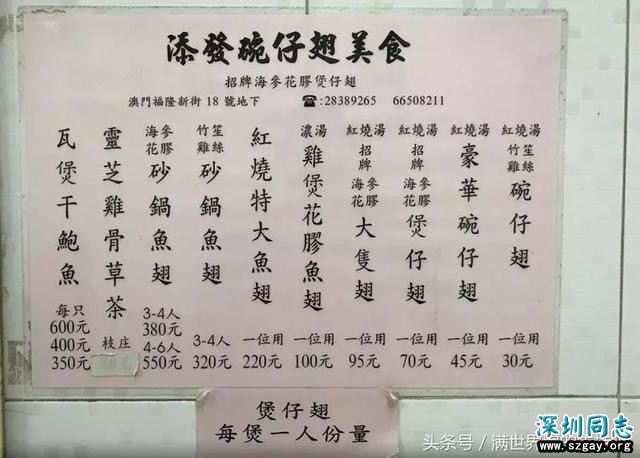 添發碗仔翅美食
招牌海參花膠煲仔翅
澳門福隆新街 18 號地下 ☎:28389265 66508211
紅燒湯 竹笙雞絲 碗仔翅 一位用 30元
紅燒湯 豪華碗仔翅 一位用 45元
紅燒湯 招牌 海參花膠 煲仔翅 一位用 70元
紅燒湯 招牌 海參花膠 大隻翅 一位用 95元
濃湯 雞煲花膠魚翅 一位用 100元
紅燒特大魚翅 一位用 220元
竹笙雞絲 砂鍋魚翅 3-4人 320元
海參花膠 砂鍋魚翅 3-4人 380元 4-6人 550元
靈芝雞骨草茶 枝庄
瓦煲干鮑魚 每只 600元 400元 350元
煲仔翅
每煲一人份量
头条号/满世界
深圳同志
www.szgay.org